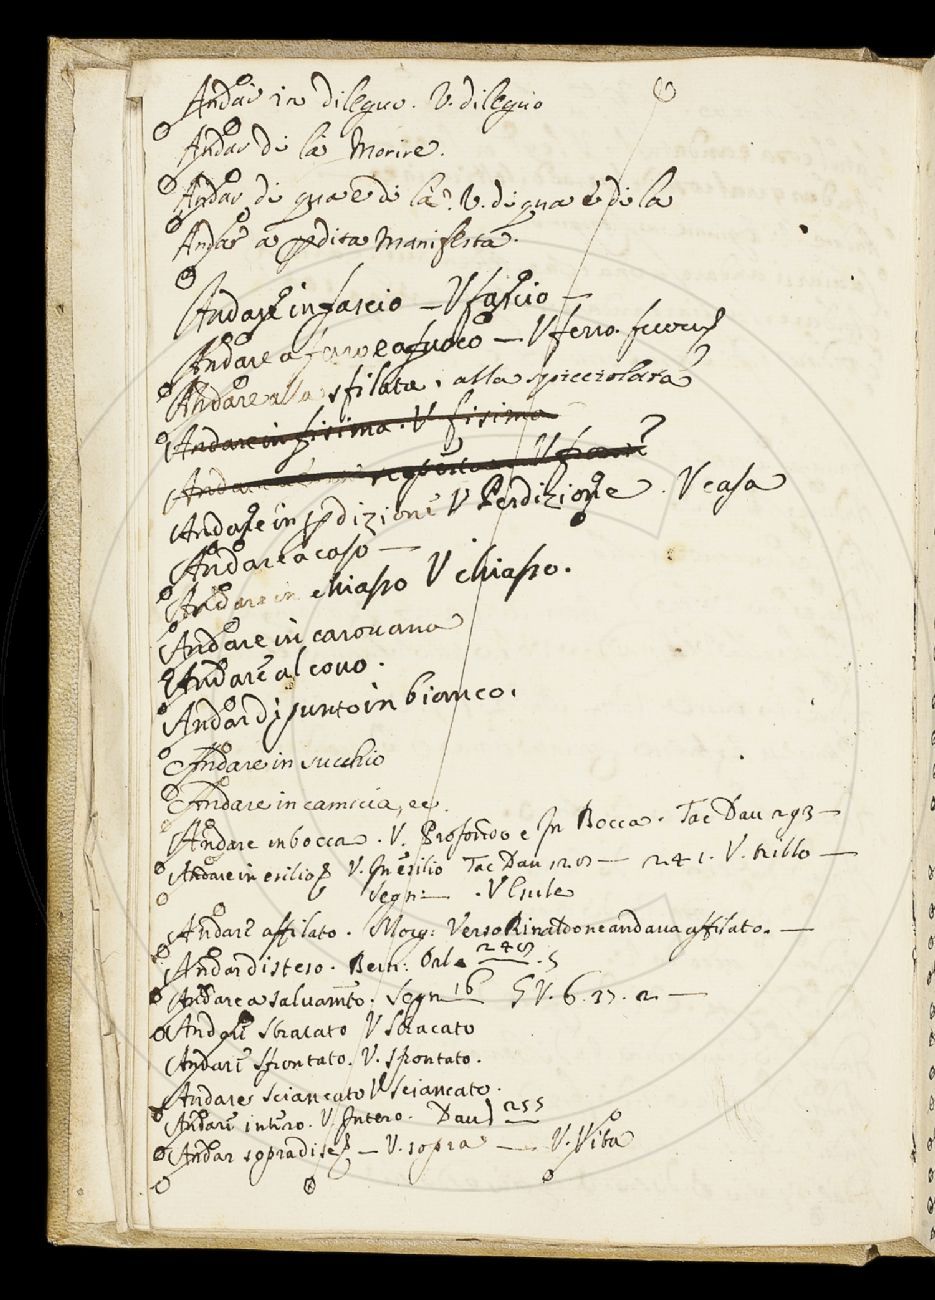 Andar in dileguo. V. dileguo
Andar di là Morire.
Andar di qua e di là. V. di qua e di la
Andar a pdita manifesta.
Andare in fascio — V fascio —
Andare a ferro e a fuoco — V ferro.
Andare alla sfilata. alla spicciolata
Andare in fisima. V fisima
Andare V
Andare in pdizione V Perdizione. V casa
Andare a caso —
Andare in chiasso V chiasso.
Andare in carovana
Andare al covo.
Andar di punto in bianco.
Andare in succhio
Andare in camicia, ec.
Andare in bocca. V. Profondo e In Bocca. Tac Dav 293 —
Andare in esilio V. In esilio Tac Dav — 241. V. —
Segn: — . V Esule
Andare affilato. Morg: Verso Rinaldo ne andava affilato. —
Andar disteso. Bern: Orl. 249. 5
Andare a salvamto. Segn 16 V. 6. 27. 2 —
Andare sbracato V sbracato
Andare sfrontato. V. sfrontato.
Andare sciancato V sciancato.
Andare intero. V. Intero. Dav 255
Andar sopra di se — V. sopra — V. Vita